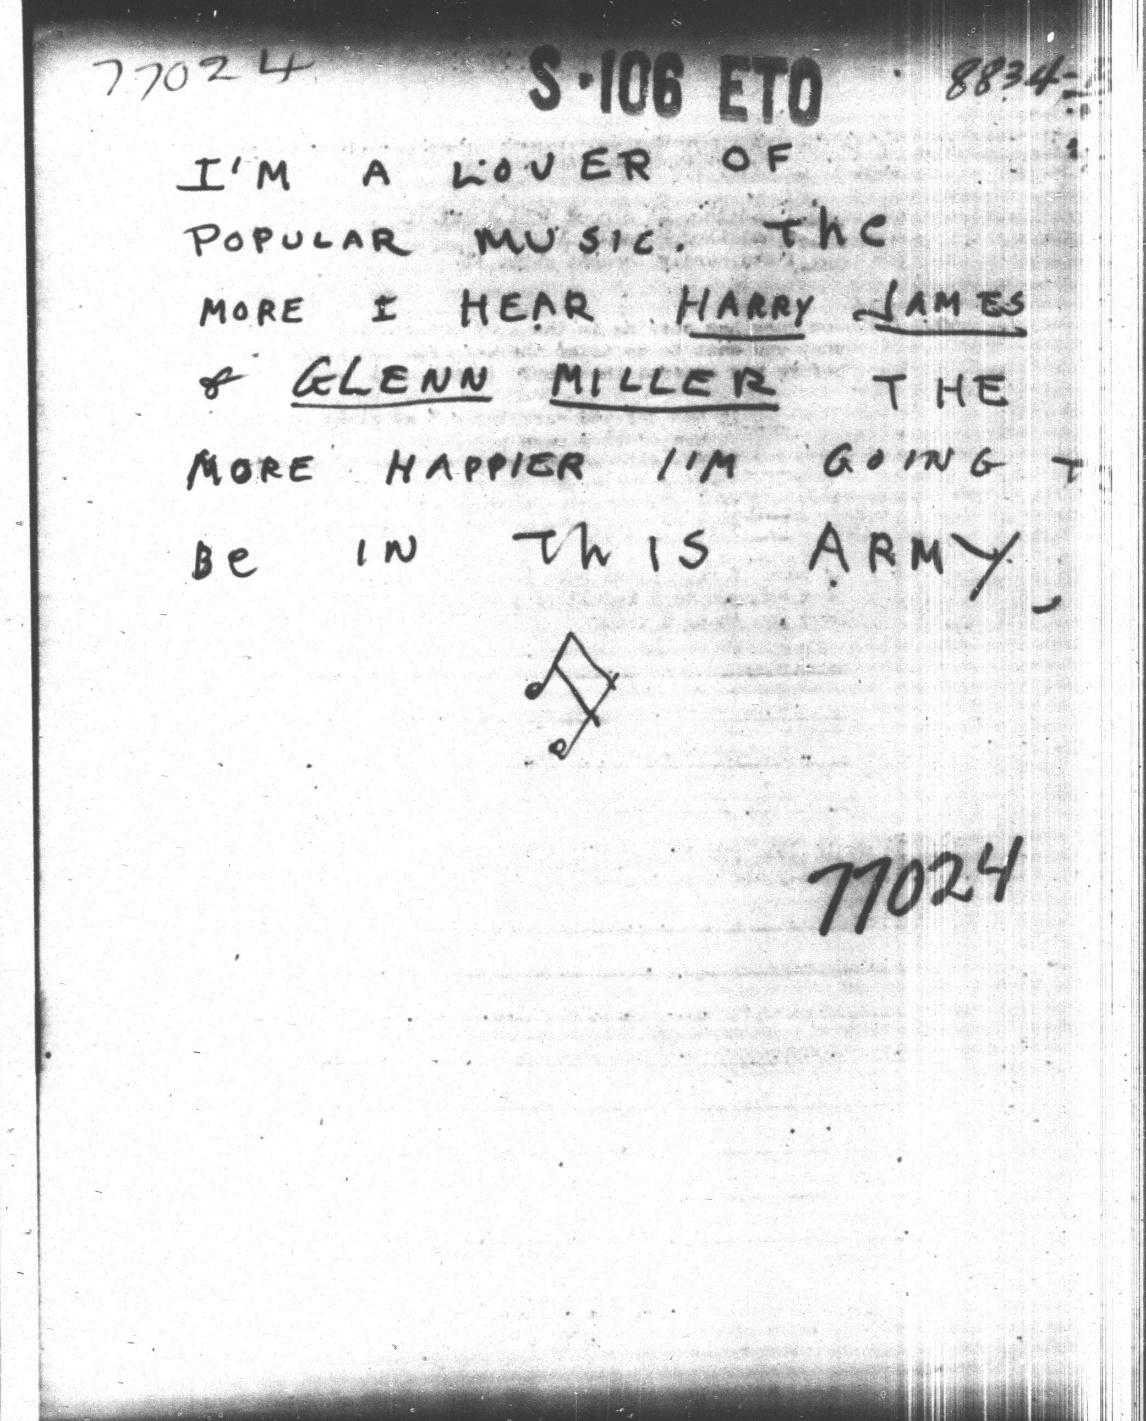 77024 S-106 ETO 8834-
I'M A LOVER OF
POPULAR MUSIC. The
MORE I HEAR HARRY JAMES
& GLENN MILLER THE
MORE HAPPIER I'M GOING T
Be IN ThIS ARMY,
77024